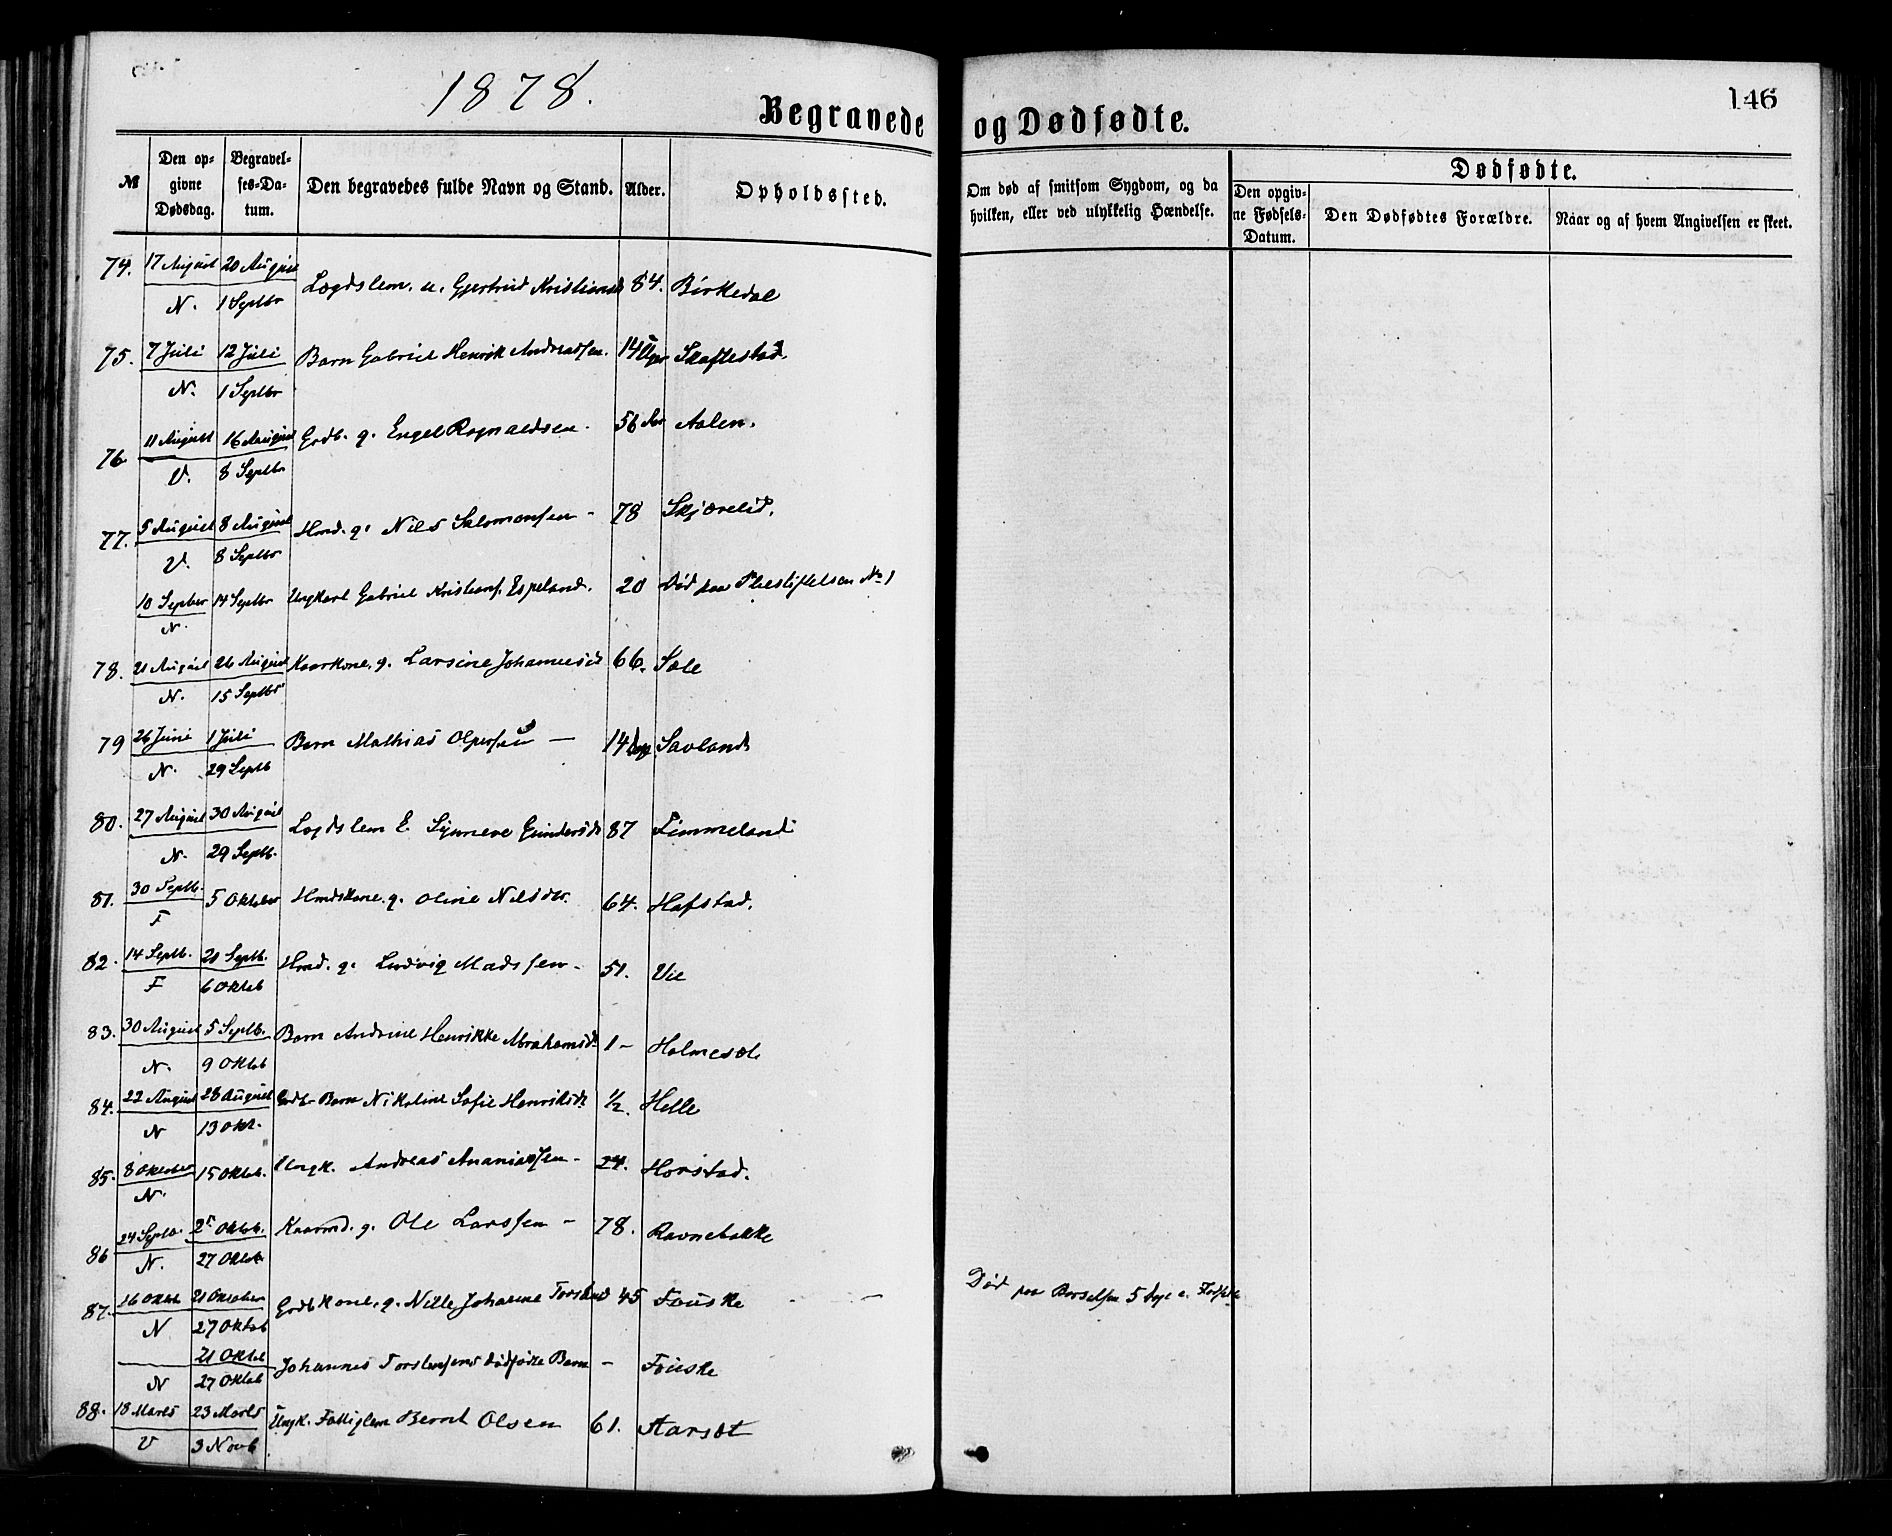 1878.
146
Begravede og Dødfødte.
№
Den op-
givne
Dødsdag.
Begravel-
ses-Da-
tum.
Den begravedes fulde Navn og Stand.
Alder.
Opholdssted.
Om død af smitsom Sygdom, og da
hvilken, eller ved ulykkelig Hændelse.
Dødfødte.
Den opgiv-
ne Fødsels-
Datum.
Den Dødfødtes Forældre.
Naar og af hvem Angivelsen er skeet.
74. 17 August 20 August Lægdslem. u. Gjertrud Kristiansd 84. Birkedal
N. 1 Septbr
75. 7 Juli 12 Juli Barn Gabriel Henrik Andreassen. 14 Uger Skaftestad.
N. 1 Septbr
76. 11 August 16 August Grdb. g. Engel Ragnaldsen. 56 Aar Aalen.
V. 8 Septbr
77. 5 August 8 August Hmd. g. Nils Salomonsen - 78 Skjærelid.
V. 8 Septbr
10 Septber 14 Septbr Ungkarl Gabriel Kristians. Espeland. 20 Død paa Pleiestiftelsen No 1
N.
78. 21 August 26 August Kaarkone. g. Larsine Johannesdt 66. Sale
N. 15 Septbr
79 26 Juni 1 Juli Barn Mathias Olsen - 14 Dage Savland
N. 29 Septb
80. 27 August 30 August Lægdslem E. Synneve Gundersdt 87 Timmeland
N. 29 Septb.
81. 30 Septb. 5 Oktober Hmdskone. g. Oline Nilsdtr. 64. Hafstad.
F
82. 14 Septb. 21 Septb. Hmd. g. Ludvig Madssen - 51. Vie
F 6 Oktob
83. 30 August 5 Septb. Barn Andrine Henrikke Abrahamsdt 1 - Holmesæt
N. 9 Oktob
84. 22 August 28 August Grdbr Barn Nikoline Sofie Henriksdt ½. Helle
N 13 Okt.
85. 8 Oktober 15 Oktob. Ungk. Andreas Ananiassen - 24. Horstad.
N.
86 24 Septb. Oktob. Kaarmd. g. Ole Larssen - 78. Ravnebakke
N. 27 Oktob
87. 16 Oktb 21 Oktober Grdbkone. g. Nille Johanne Torsd 45 Fauske - Død paa Barselsen 5 Dage e. Fødsel
N 27 Oktob
21 Oktob Johannes Torstensens dødfødte Barn - Fauske
N 27 Oktob
88. 18 Marts 23 Marts Ungk. Fattiglem Bernt Olsen 61. Aarsæt
V 3 Novb